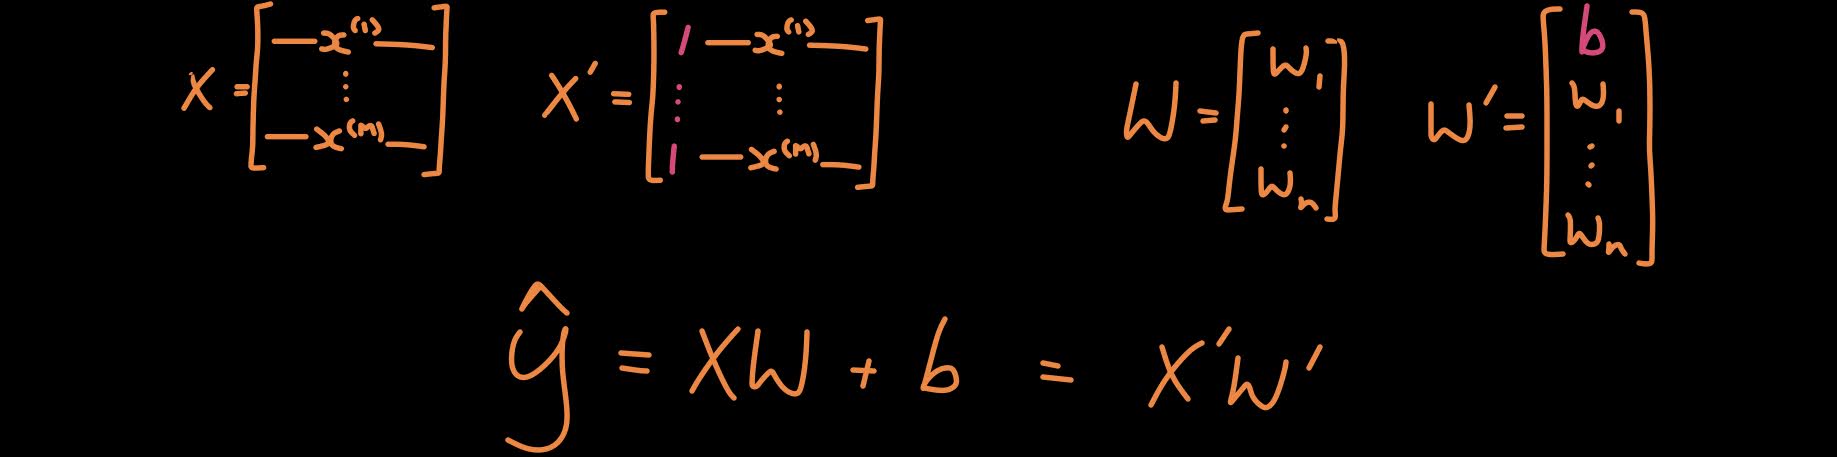 X = [ — x⁽¹⁾ — ⋮ — x⁽ᵐ⁾ — ] X' = [ 1 — x⁽¹⁾ — ⋮ ⋮ 1 — x⁽ᵐ⁾ — ] W = [ w₁ ⋮ wₙ ] W' = [ b w₁ ⋮ wₙ ]
ŷ = XW + b = X'W'